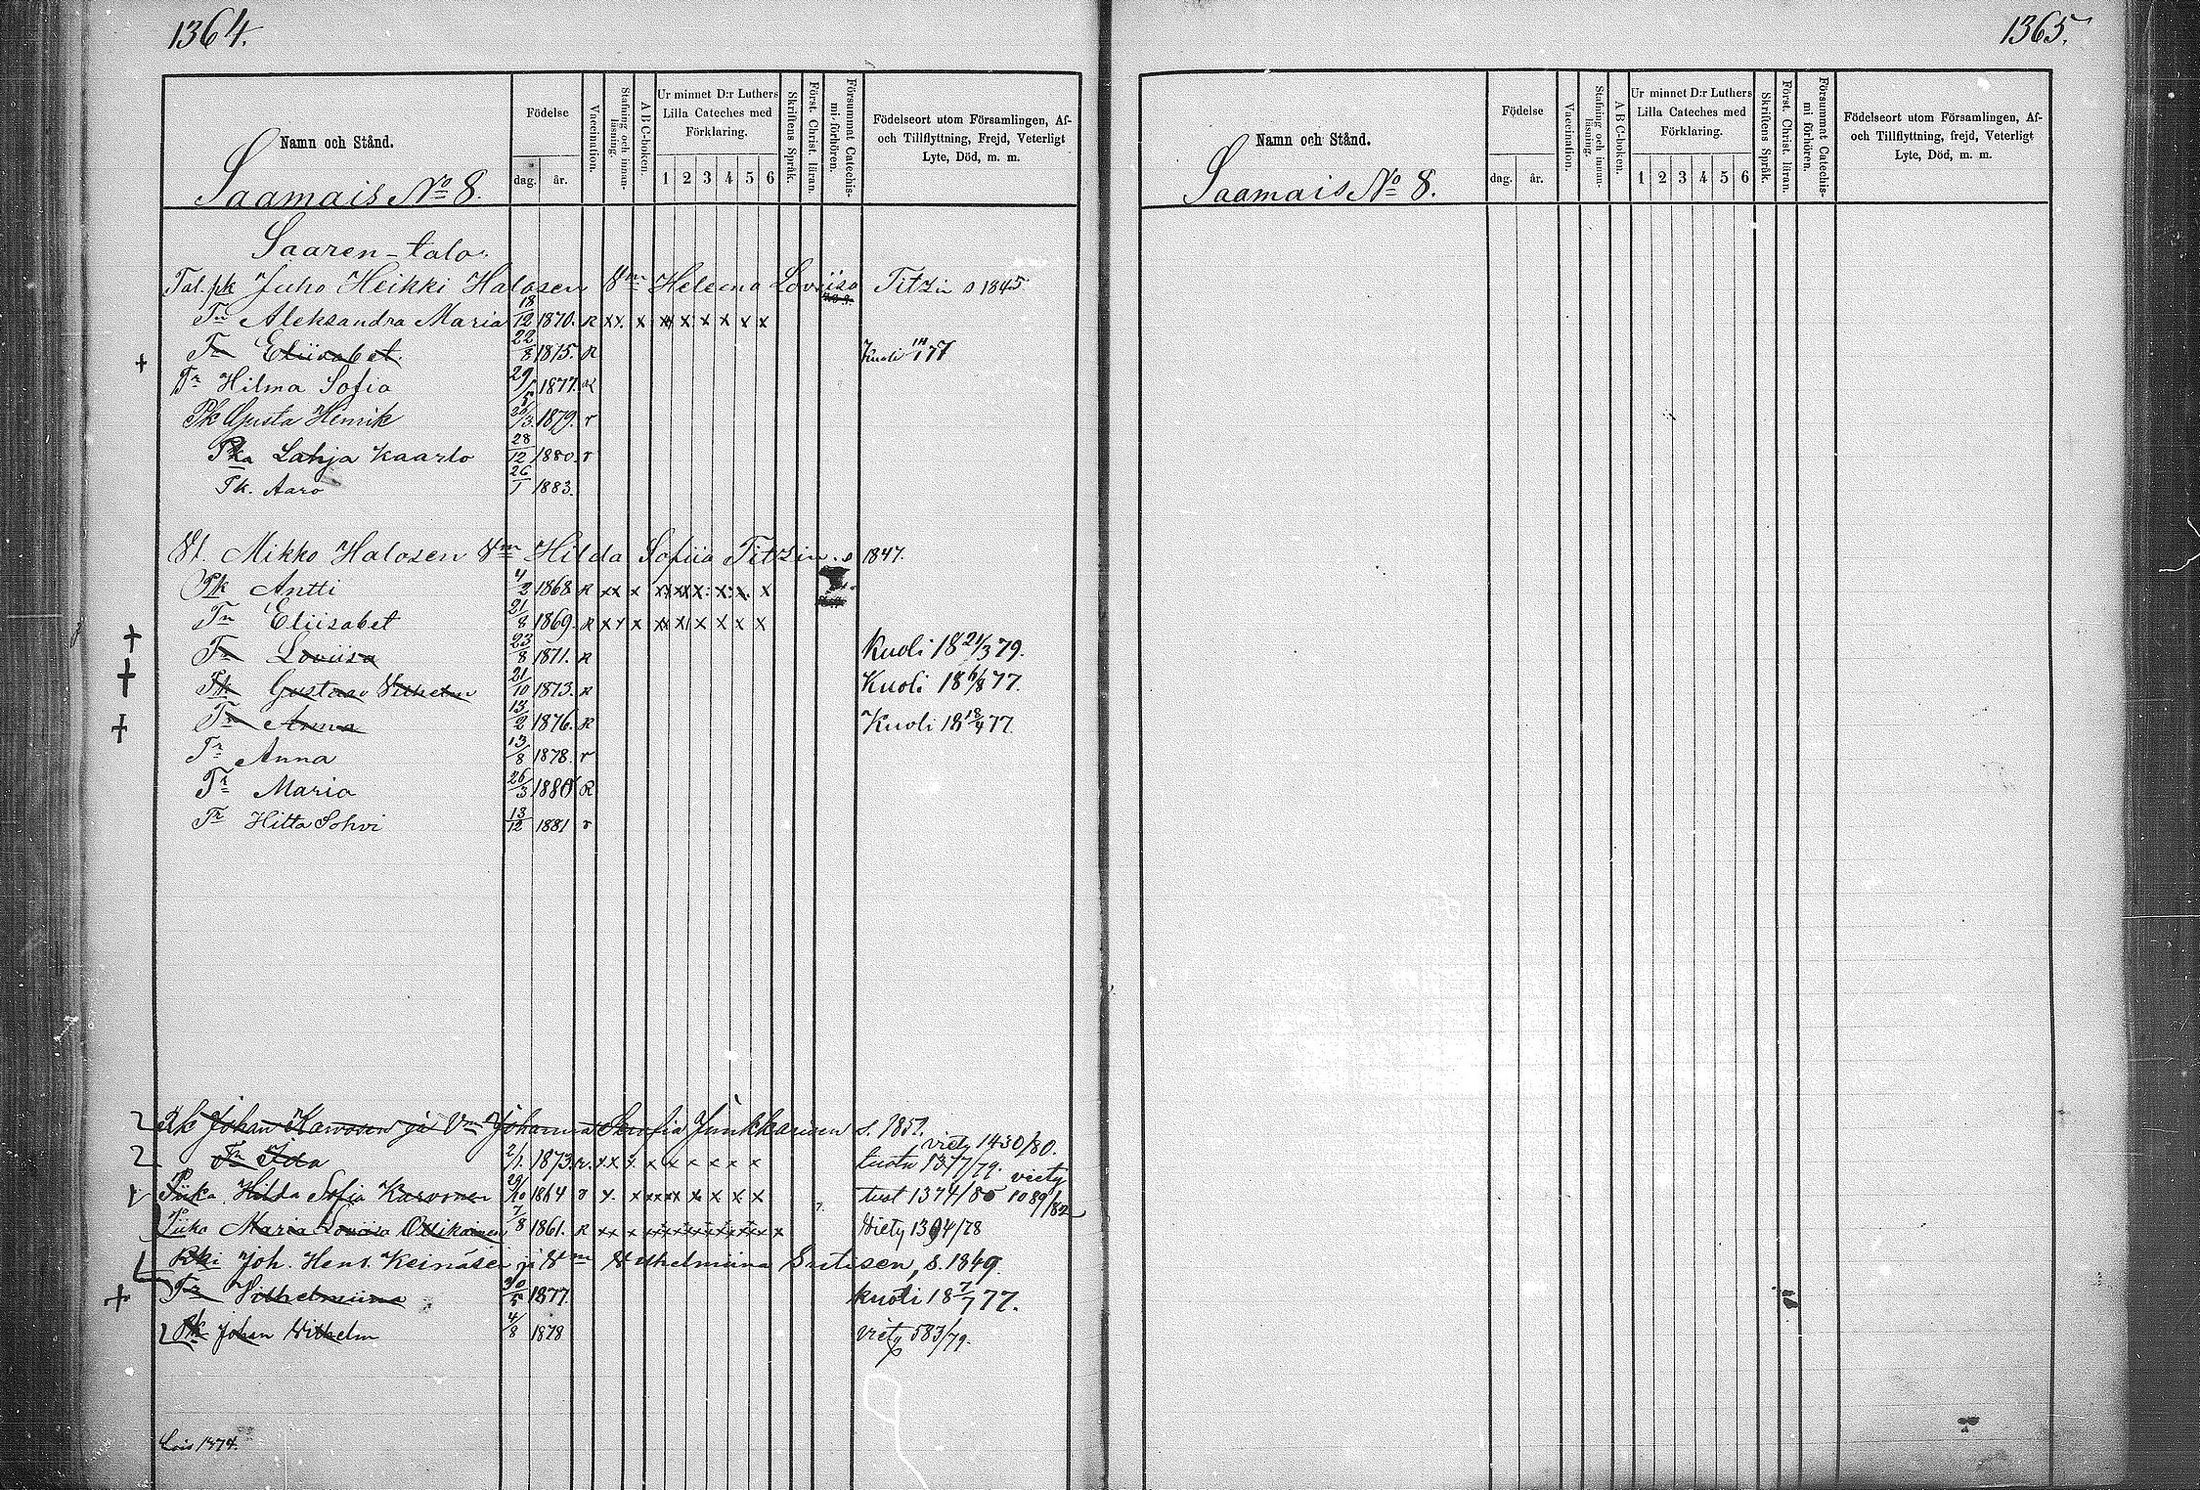 1364.
Namn och Stånd.
Födelse
dag.
år.
Vaccination.
Stafning och innan-läsning.
A B C-boken.
Ur minnet D:r Luthers
Lilla Cateches med
Förklaring.
1 2 3 4 5 6
Skriftens Språk.
Först. Christ. läran.
Försummat Catechis-mi-förhören.
Födelseort utom Församlingen, Af-
och Tillflyttning, Frejd, Veterligt
Lyte, Död, m. m.
Saamais No 8.
Saaren-talo.
Tal. pk Juho Heikki Halosen Vm Heleena Loviisa Titzin s 1845
Tr Aleksandra Maria 18/12 1870. R xx. x xx x x x x x
+ Tr Eliisabet. 22/8 1875. R Kuoli 77
Tr Hilma Sofia 29/5 1877. R
Pk Gusta Henrik 30/3. 1879. r
Pka Lahja Kaarlo 28/12 1880. r
Pk. Aaro 26/1 1883.
Vl Mikko Halosen Vm Hilda Sofiia Titzin. s 1847.
Pk Antti 4/2 1868 R xx x xx xx x x x x
Tr Eliisabet 21/8 1869. R xx x xx x x x x x
+ Tr Loviisa 23/8 1871. R Kuoli 18 21/3 79.
+ Pk Gustav Vilhelm 21/10 1873. R Kuoli 18 6/8 77.
+ Tr Anna 13/2 1876. R Kuoli 18 18/4 77.
Tr Anna 13/8 1878. r
Tr Maria 26/3 1880 R
Tr Hilta Sohvi 13/12 1881 r
2 Rk Johan Karvosen ja Vm Johanna Sofia Junkkarinen s. 1852.
viety 1430/80.
2 Tr Ida 2/1. 1873. r. xx x. x x x x x x tuotu 1377/79.
viety
Piika Hilda Sofia Karvonen 29/10 1864 r x. x xxxx x x x x x tuot 1374/80 1089/82
Piika Maria Loviisa Ollikainen 7/8 1861. R xx x Viety 1394/78
Rki Joh. Henr. Keinäsen ja Vm Vilhelmiina s. 1849.
+ Tr Vilhelmiina 30/5 1877. kuoli 18 7/7 77.
2 Pk Johan Wilhelm 4/8 1878 viety 583/79.
1874.
1365.
Namn och Stånd.
Födelse
dag.
år.
Vaccination.
Stafning och innan-läsning.
A B C-boken.
Ur minnet D:r Luthers
Lilla Cateches med
Förklaring.
1 2 3 4 5 6
Skriftens Språk.
Först. Christ. läran.
Försummat Catechis-mi förhören.
Födelseort utom Församlingen, Af-
och Tillflyttning, frejd, Veterligt
Lyte, Död, m. m.
Saamais No 8.